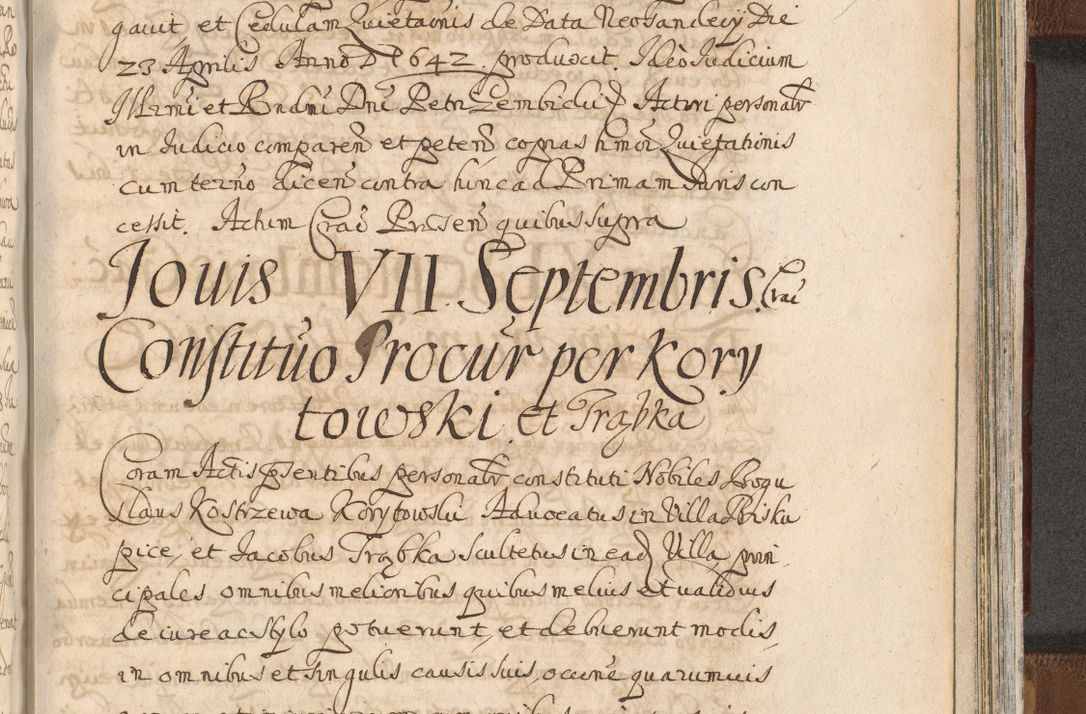 gauit et Cedulam Quietaõnis de Data Neosandecÿ Die
23 Aprilis Anno D 1642. produxit. Ideò Iudicium
Illrmi et Rndmi Dni Petri Gembicki Actori personalr
in Iudicio comparen et peten copias hmoi Quietationis
cum termo dicen contra hinc ad Primam Iuris con
cessit. Actum Crac Præsen quibus supra
Iouis VII Septembris. Crac
Constituo Procur per Kory
towski et Trąbka
Coram Actis psentibus personalr constituti Nobiles Bogu
slaus Kostrzewa Korytowski Aduocatus in Villa Bisku
pice, et Iacobus Trąbka Scultetus in ead Villa, prin
cipales omnibus melioribus quibus melius et validius
de iure ac stylo potuerunt, et debuerunt modis,
in omnibus et singulis causis suis, ac cuie quarumuis